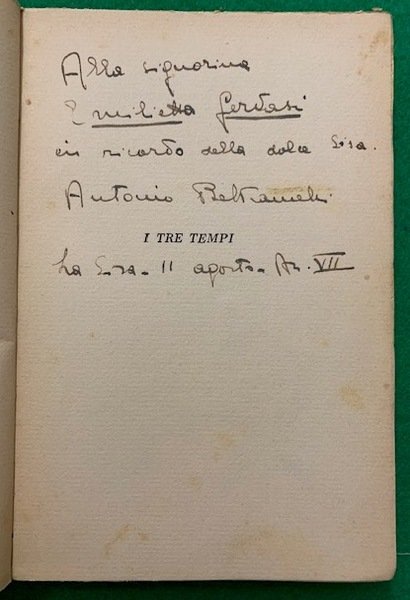 Alla signorina
Emilietta Gervasi
in ricordo della dolce Sisa.
Antonio Beltramelli
I TRE TEMPI
La Sisa - 11 agosto - An. VII